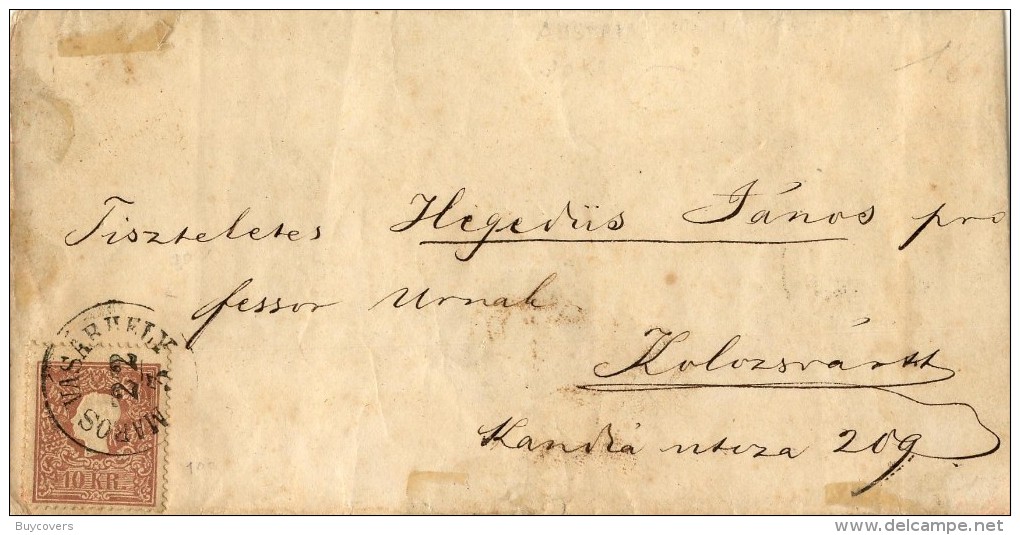 Tiszteletes Hegedüs János pro
fessor Urnak
Kolozsvártt
Kandia utcza 209
MAROS VASARHELY
22
10 KR.
Buycovers
www.delcampe.net